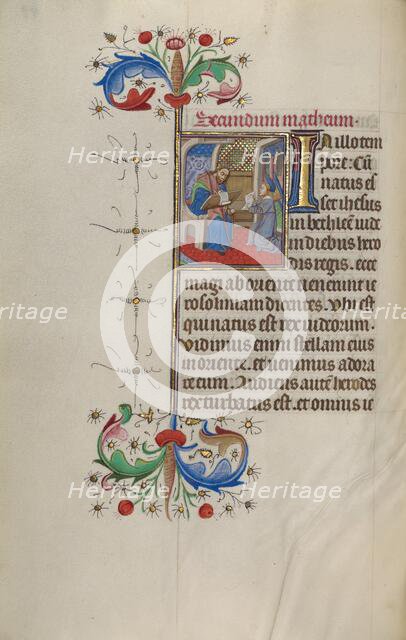 Secundum matheum.
In illo tem
pore: Cū
natus es
set ihesus
in bethleē iude
in diebus hero
dis regis. ecce
magi ab oriente uenerunt ie
rosolimam dicentes. Vbi est
qui natus est rex iudeorum.
Vidimus enim stellam eius
in oriente. et uenimus adora
re eum. Audiens autē herodes
rex turbatus est. et omnis ie
Heritage
Heritage
Heritage
Heritage
Heritage
Heritage